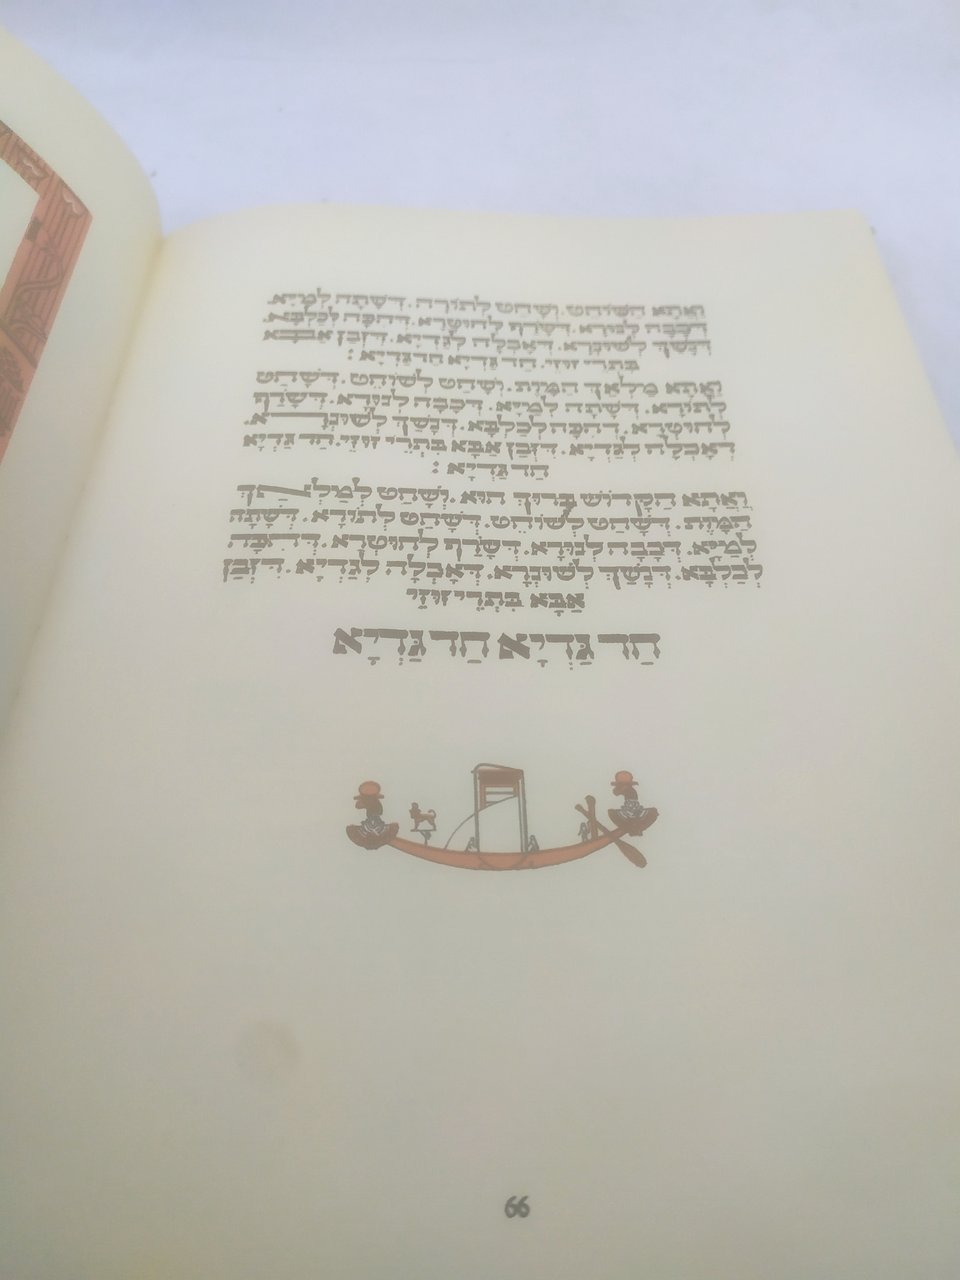 וְאָתָא הַשּׁוֹחֵט. וְשָׁחַט לְתוֹרָה. דְּשָׁתָה לְמַיָּא.
דְּכָבָה לְנוּרָא. דְּשָׂרַף לְחוּטְרָא. דְּהִכָּה לְכַלְבָּא.
דְּנָשַׁךְ לְשׁוּנְרָא. דְּאָכְלָה לְגַדְיָא. דְּזַבִּן אַבָּא
בִּתְרֵי זוּזֵי. חַד גַּדְיָא חַד גַּדְיָא :
וְאָתָא מַלְאַךְ הַמָּוֶת. וְשָׁחַט לְשׁוֹחֵט. דְּשָׁחַט
לְתוֹרָא. דְּשָׁתָה לְמַיָּא. דְּכָבָה לְנוּרָא. דְּשָׂרַף
לְחוּטְרָא. דְּהִכָּה לְכַלְבָּא. דְּנָשַׁךְ לְשׁוּנְרָא.
דְּאָכְלָה לְגַדְיָא. דְּזַבִּן אַבָּא בִּתְרֵי זוּזֵי. חַד גַּדְיָא
חַד גַּדְיָא :
וְאָתָא הַקָּדוֹשׁ בָּרוּךְ הוּא. וְשָׁחַט לְמַלְאַךְ
הַמָּוֶת. דְּשָׁחַט לְשׁוֹחֵט. דְּשָׁחַט לְתוֹרָא. דְּשָׁתָה
לְמַיָּא. דְּכָבָה לְנוּרָא. דְּשָׂרַף לְחוּטְרָא. דְּהִכָּה
לְכַלְבָּא. דְּנָשַׁךְ לְשׁוּנְרָא. דְּאָכְלָה לְגַדְיָא. דְּזַבִּן
אַבָּא בִּתְרֵי זוּזֵי
חַד גַּדְיָא חַד גַּדְיָא
66